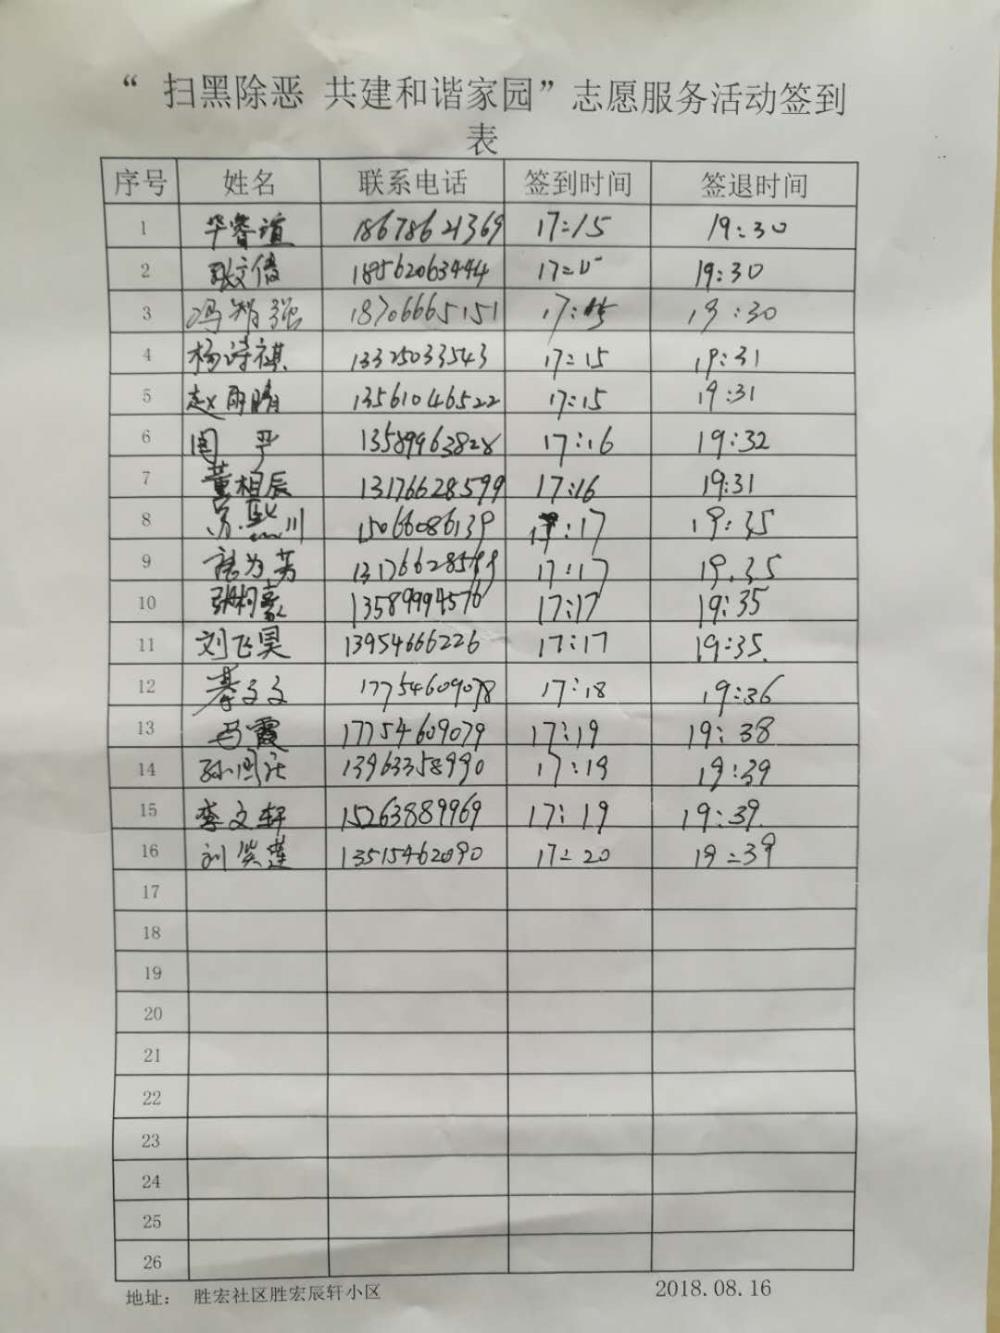 “ 扫黑除恶 共建和谐家园”志愿服务活动签到
表
序号 姓名 联系电话 签到时间 签退时间
1 华睿谊 18678621369 17:15 19:30
2 18562063444 17:15 19:30
3 冯智强 18706665151 17:15 19:30
4 杨诗祺 13325033543 17:15 19:31
5 赵雨晴 13561046522 17:15 19:31
6 13589963828 17:16 19:32
7 董相辰 13176628599 17:16 19:31
8 15066086139 17:17 19:35
9 13176628599 17:17 19.35
10 13589994576 17:17 19:35
11 刘飞昊 13954666226 17:17 19:35.
12 綦文文 17754609078 17:18 19:36
13 马霞 17754609079 17:19 19:38
14 13963358990 17:19 19:39
15 李文轩 15263889969 17:19 19:39.
16 刘笑莲 13515462090 17:20 19:39
17
18
19
20
21
22
23
24
25
26
地址： 胜宏社区胜宏辰轩小区 2018.08.16